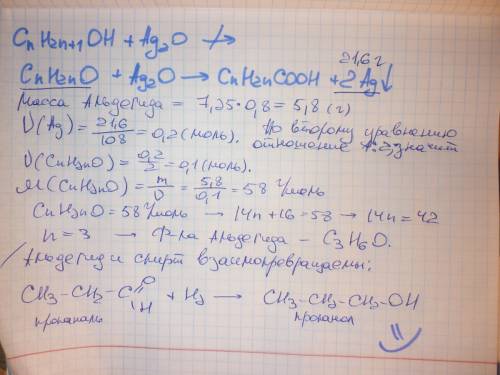 CnH2n+1OH + Ag2O ↛
21,6 г
CnH2nO + Ag2O → CnH2nCOOH + 2Ag↓
Масса Альдегида = 7,25·0,8 = 5,8 (г)
ν(Ag) = 21,6/108 = 0,2 (моль). По второму уравнению
отношение 1:2, значит
ν(CnH2nO) = 0,2/2 = 0,1 (моль).
M(CnH2nO) = m/ν = 5,8/0,1 = 58 г/моль
CnH2nO = 58 г/моль → 14n + 16 = 58 → 14n = 42
n = 3 → Ф-ла Альдегида – C3H6O.
Альдегид и спирт взаимопревращаемы:
CH3-CH2-C=O H + H2 → CH3-CH2-CH2-OH
пропаналь пропанол